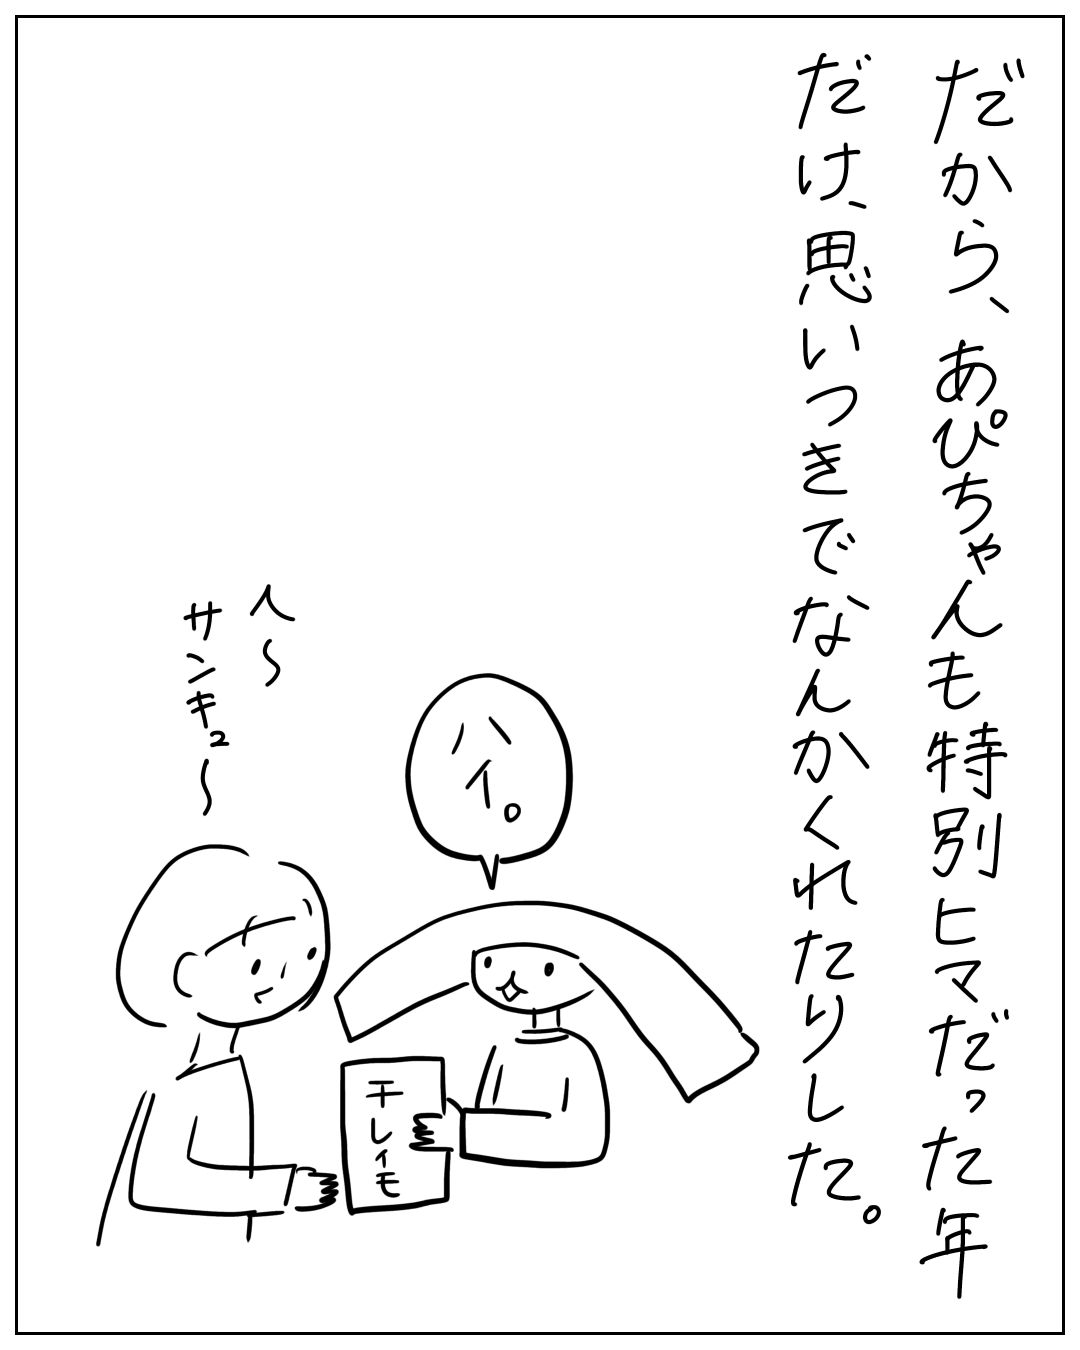 だから、あぴちゃんも特別ヒマだった年
だけ、思いつきでなんかくれたりした。
ハイ。
へ〜
サンキュ〜
干しイモ